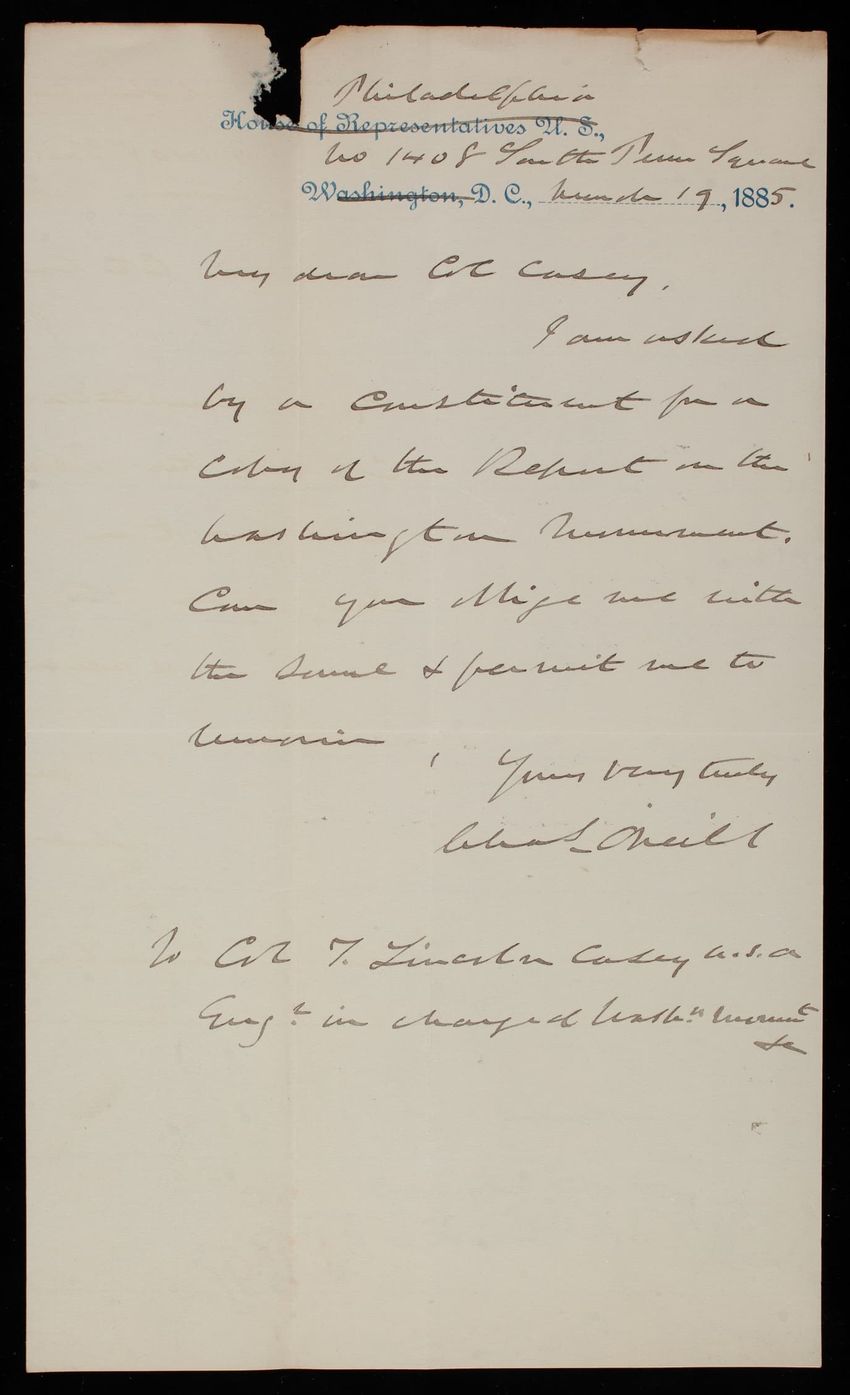 Philadelphia
House of Representatives U. S.,
No 1408 South Penn Square
Washington, D. C., March 19, 1885.
My dear Col Casey,
I am asked
by a Constituent for a
Copy of the Report on the
Washington Monument.
Can you oblige me with
the same & permit me to
remain,
Yours very truly
Chas O'Neill
To Col T. Lincoln Casey U.S.A
Engr in charge of Washn Monumt
&c